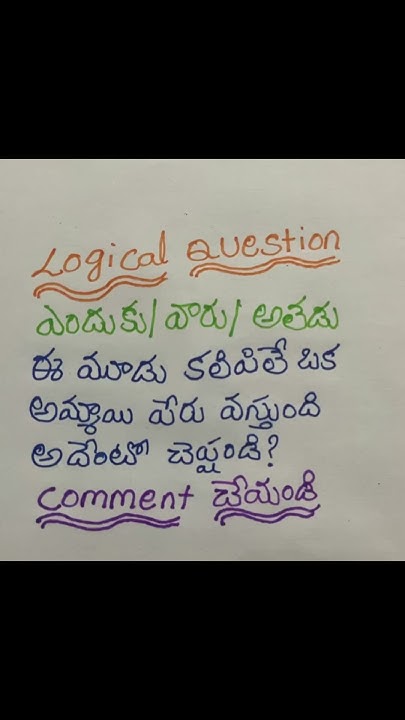 Logical Question
ఎందుకు/వారు/అతడు
ఈ మూడు కలిపితే ఒక
అమ్మాయి పేరు వస్తుంది
అదేంటో చెప్పండి?
comment చేయండి